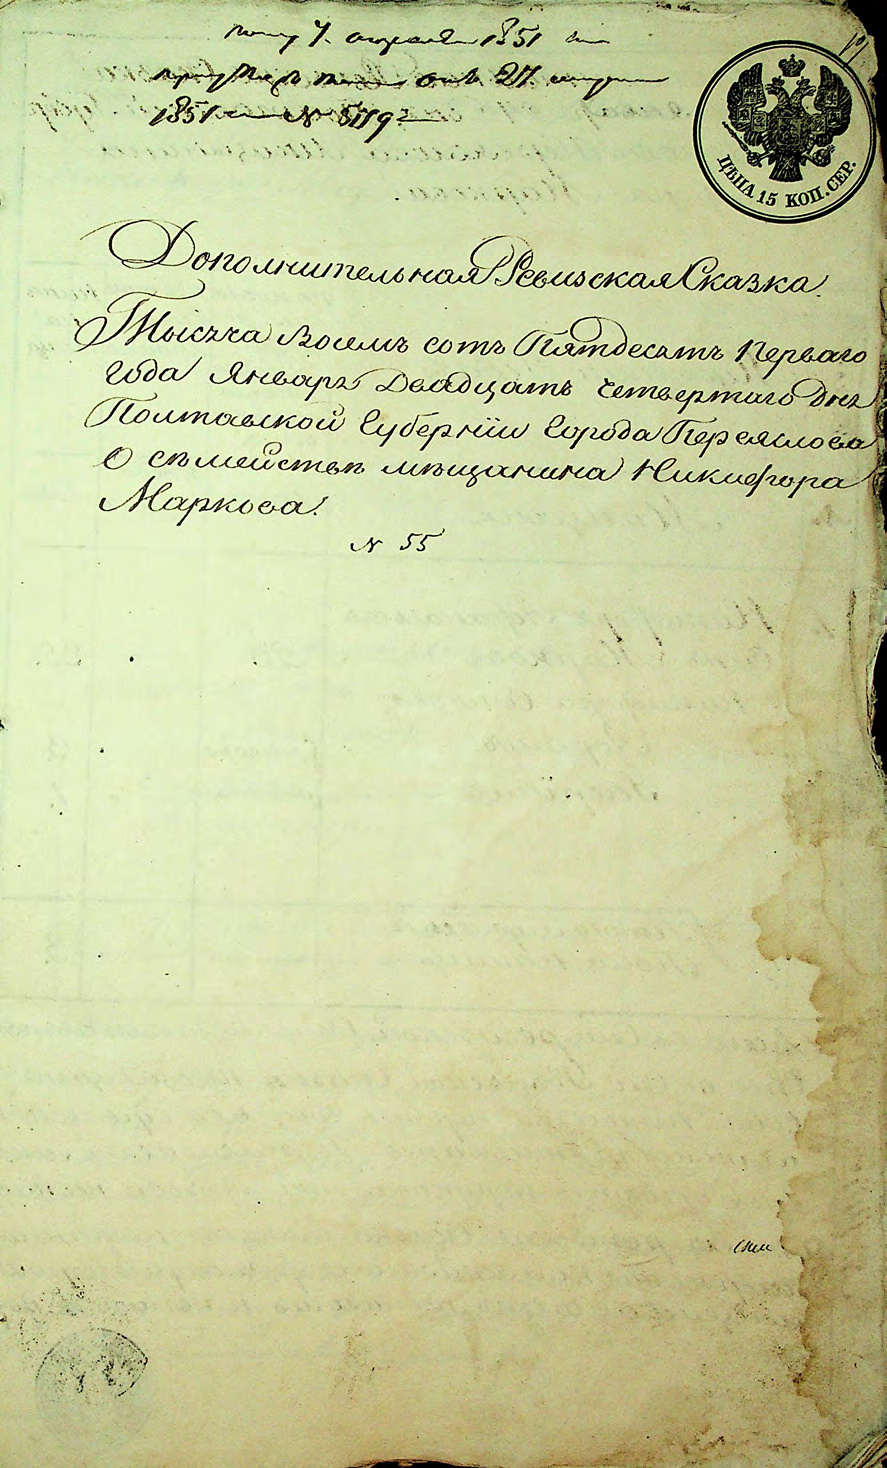 7. апреля 1851
27
1851 № 5119
ЦѢНА 15 КОП. СЕР.
Дополнительная Ревизская Сказка.
Тысяча восемъ сотъ Пятдесятъ Перваго
года Января Двадцать четвертаго Дня
Полтавской Губерніи Города Переяслова
О сѣмействѣ мѣщанина Никифора
Маркова.
№ 55